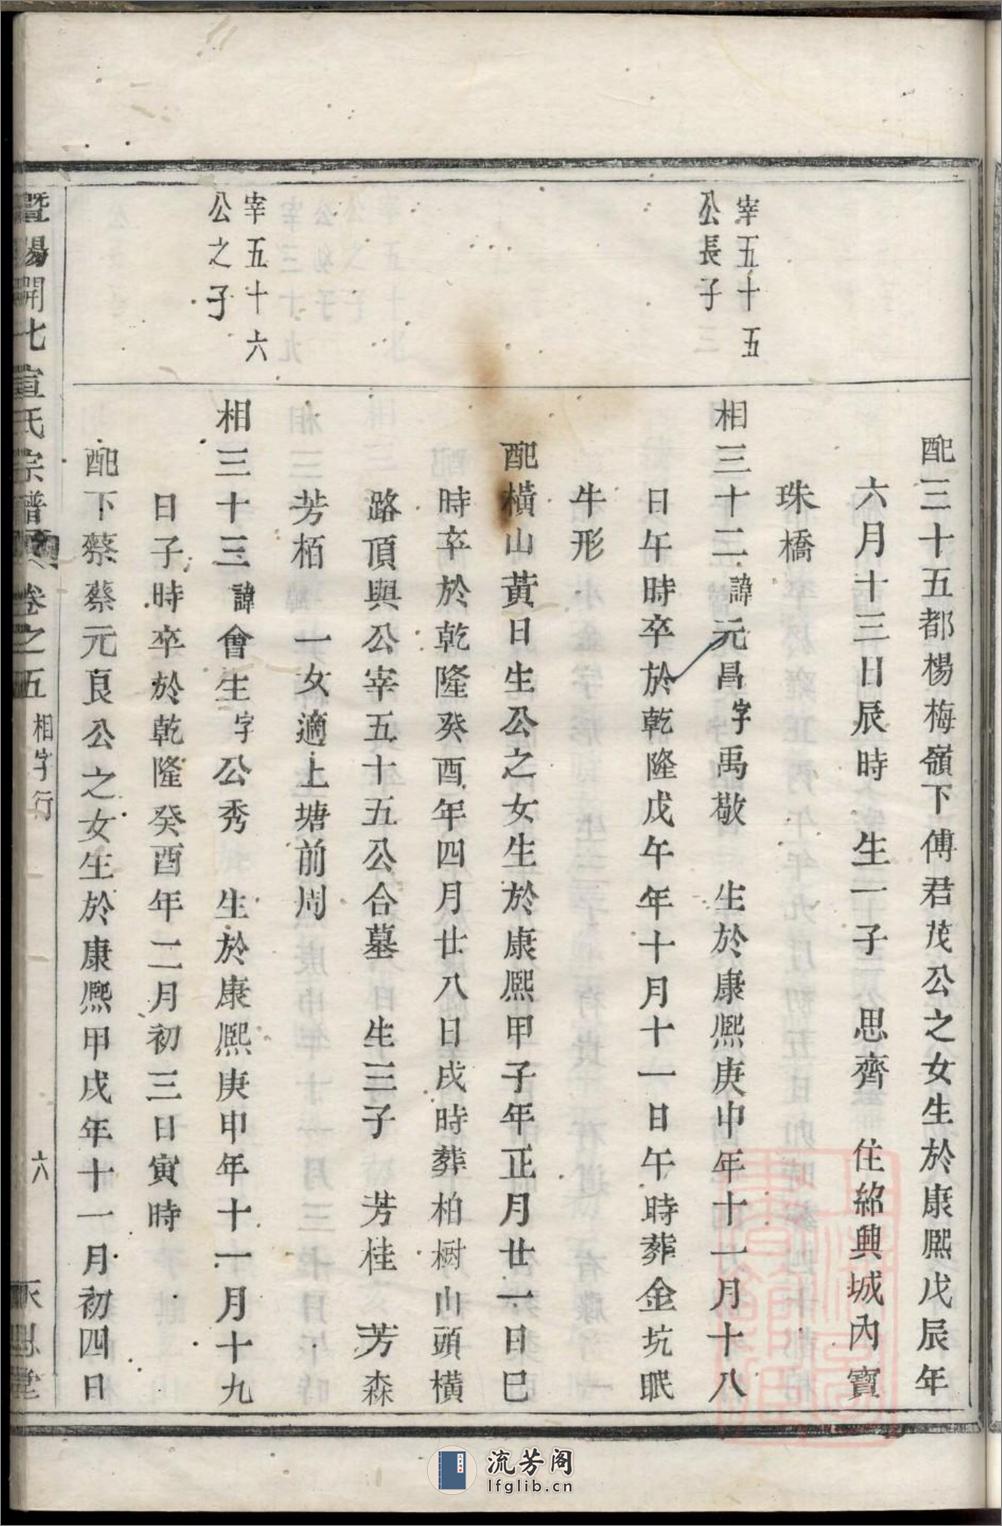 配三十五都楊梅嶺下傅君茂公之女生於康熙戊辰年
六月十三日辰時 生一子 思齊 住紹興城內寶
珠橋
宰五十五
公長子
相三十二諱元昌字禹敬 生於康熙庚申年十一月十八
日午時卒於乾隆戊午年十月十一日午時葬金坑眠
牛形
配橫山黃日生公之女生於康熙甲子年正月廿一日巳
時卒於乾隆癸酉年四月廿八日戌時葬柏樹山頭橫
路頂與公宰五十五公合墓 生三子 芳桂 芳森
芳栢 一女適上塘前周
宰五十六
公之子
相三十三諱會生字公秀 生於康熙庚申年十一月十九
日子時卒於乾隆癸酉年二月初三日寅時
配下蔡蔡元良公之女生於康熙甲戌年十一月初四日
暨陽開化宣氏宗譜 卷之五 相字行 六 永思堂
流芳阁
lfglib.cn